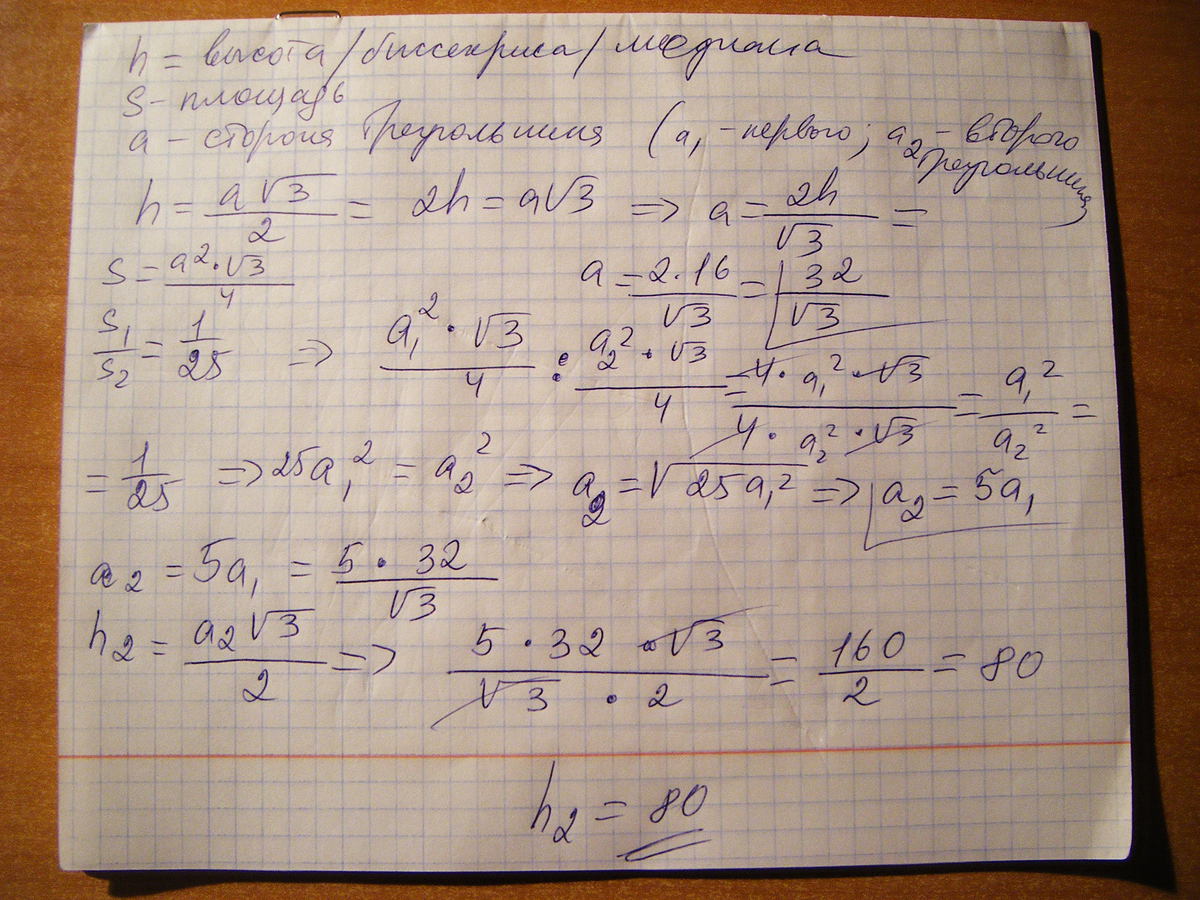 h = высота/биссектриса/медиана
S - площадь
a - сторона треугольника (a₁ - первого; a₂ - второго треугольника)
h = a√3/2 = 2h = a√3 => a = 2h/√3 =
S = a²·√3/4
a = 2·16/√3 = 32/√3
S₁/S₂ = 1/25 => a₁²·√3/4 : a₂²·√3/4 = 4·a₁²·√3/4·a₂²·√3 = a₁²/a₂² =
= 1/25 => 25a₁² = a₂² => a₂ = √25a₁² => a₂ = 5a₁
a₂ = 5a₁ = 5·32/√3
h₂ = a₂√3/2 => 5·32·√3/√3·2 = 160/2 = 80
h₂ = 80